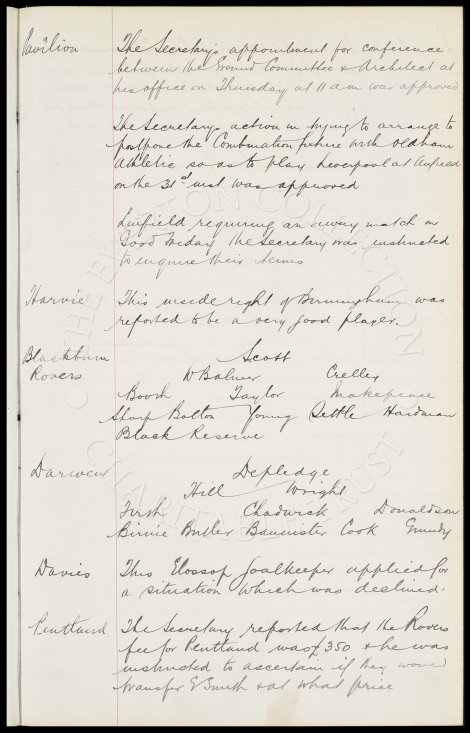 Pavilion The Secretary's appointment for conference
between the Ground Committee & Architect at
his office on Thursday at 11 a.m was approved
The Secretary's action in trying to arrange to
postpone the Combination fixture with Oldham
Athletic so as to play Liverpool at Anfield
on the 31st inst was approved
Linfield requiring an away match on
Good Friday the Secretary was instructed
to inquire their terms
Harvie This inside right of Birmingham was
reported to be a very good player.
Blackburn Scott
Rovers W Balmer Crelley
Booth Taylor Makepeace
Sharp Bolton Young Settle Hardman
Black Reserve
Darwen Depledge
Hill Wright
Chadwick Donaldson
Birnie Butler Bannister Cook Grundy
Davies This Glossop Goalkeeper applied for
a situation which was declined.
Pentland The Secretary reported that the Rovers
fee for Pentland was £350 & he was
instructed to ascertain if they would
transfer E Smith & at what price
THE EVERTON COLLECTION
CHARITABLE TRUST